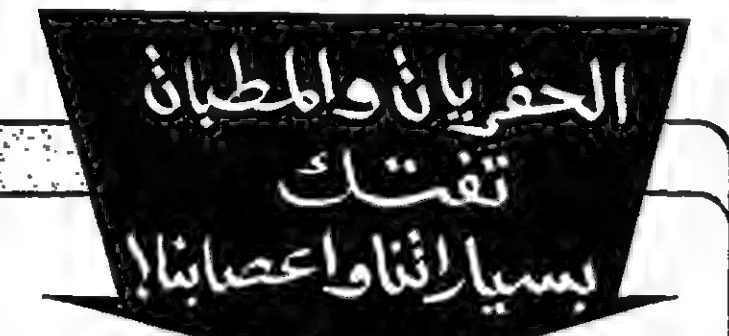 الحفريات والمطبات
تفتك
بسياراتنا واعصابنا!